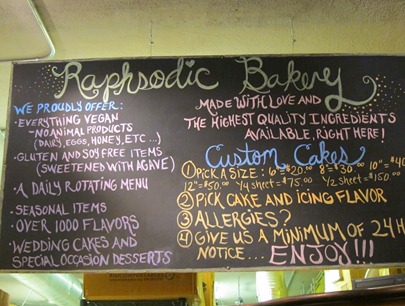 Raphsodic Bakery
WE PROUDLY OFFER:
• EVERYTHING VEGAN
- NO ANIMAL PRODUCTS
(DAIRY, EGGS, HONEY, ETC...)
• GLUTEN AND SOY FREE ITEMS
(SWEETENED WITH AGAVE)
• A DAILY ROTATING MENU
• SEASONAL ITEMS
• OVER 1000 FLAVORS
• WEDDING CAKES AND
SPECIAL OCCASION DESSERTS
MADE WITH LOVE AND
THE HIGHEST QUALITY INGREDIENTS
AVAILABLE, RIGHT HERE!
Custom Cakes
① PICK A SIZE: 6"=$20.00 8"=$30.00 10"=$40
12"=$50.00 1/4 SHEET=$75.00 1/2 SHEET=$150.00
② PICK CAKE AND ICING FLAVOR
③ ALLERGIES?
④ GIVE US A MINIMUM OF 24 H
NOTICE... ENJOY!!!